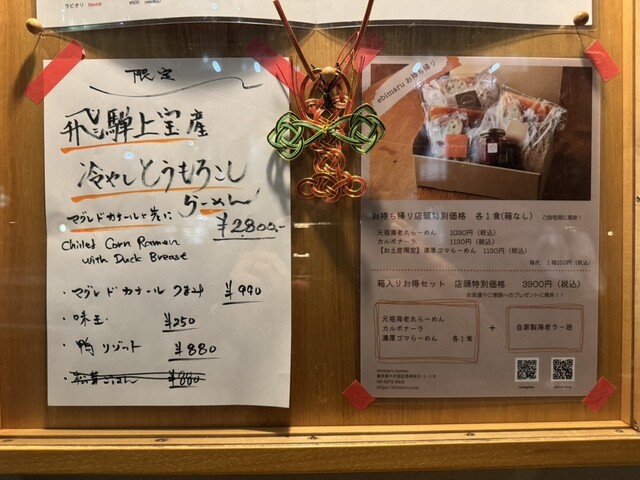 ラビオリ Ravioli ¥500
限定
飛騨上宝産
冷やしとうもろこし
らーめん
マグレドカナールと共に
¥2800.-
Chilled Corn Ramen
with Duck Breast
・マグレドカナール つまみ ¥990
・味玉 ¥250
・鴨リゾット ¥880
・松茸ごはん ¥880
ebimaru お持ち帰り
お持ち帰り店頭特別価格 各1食(箱なし) ご自宅用に最適!
元祖海老丸らーめん 1030円(税込)
カルボナーラ 1130円(税込)
【お土産限定】濃厚ゴマらーめん 1130円(税込)
箱代 1箱150円(税込)
箱入りお得セット 店頭特別価格 3900円(税込)
お友達やご家族へのプレゼントに最適!!
元祖海老丸らーめん
カルボナーラ
濃厚ゴマらーめん 各1食
+
自家製海老ラー油